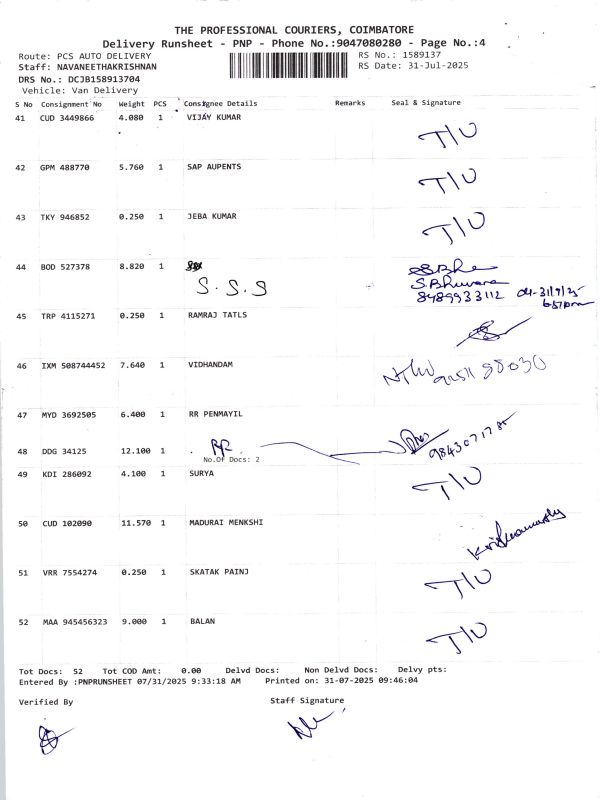 THE PROFESSIONAL COURIERS, COIMBATORE
Delivery Runsheet - PNP - Phone No.:9047080280 - Page No.:4
Route: PCS AUTO DELIVERY RS No.: 1589137
Staff: NAVANEETHAKRISHNAN RS Date: 31-Jul-2025
DRS No.: DCJB158913704
Vehicle: Van Delivery
S No Consignment No Weight PCS Consignee Details Remarks Seal & Signature
41 CUD 3449866 4.080 1 VIJAY KUMAR T/U
42 GPM 488770 5.760 1 SAP AUPENTS T/U
43 TKY 946852 0.250 1 JEBA KUMAR T/U
44 BOD 527378 8.820 1
S.S.S S.Bhuvana
8489933112
45 TRP 4115271 0.250 1 RAMRAJ TATLS
46 IXM 508744452 7.640 1 VIDHANDAM
47 MYD 3692505 6.400 1 RR PENMAYIL
48 DDG 34125 12.100 1 RR
No.Of Docs: 2
49 KDI 286092 4.100 1 SURYA T/U
50 CUD 102090 11.570 1 MADURAI MENKSHI
51 VRR 7554274 0.250 1 SKATAK PAINJ T/U
52 MAA 945456323 9.000 1 BALAN T/U
Tot Docs: 52 Tot COD Amt: 0.00 Delvd Docs: Non Delvd Docs: Delvy pts:
Entered By :PNPRUNSHEET 07/31/2025 9:33:18 AM Printed on: 31-07-2025 09:46:04
Verified By Staff Signature